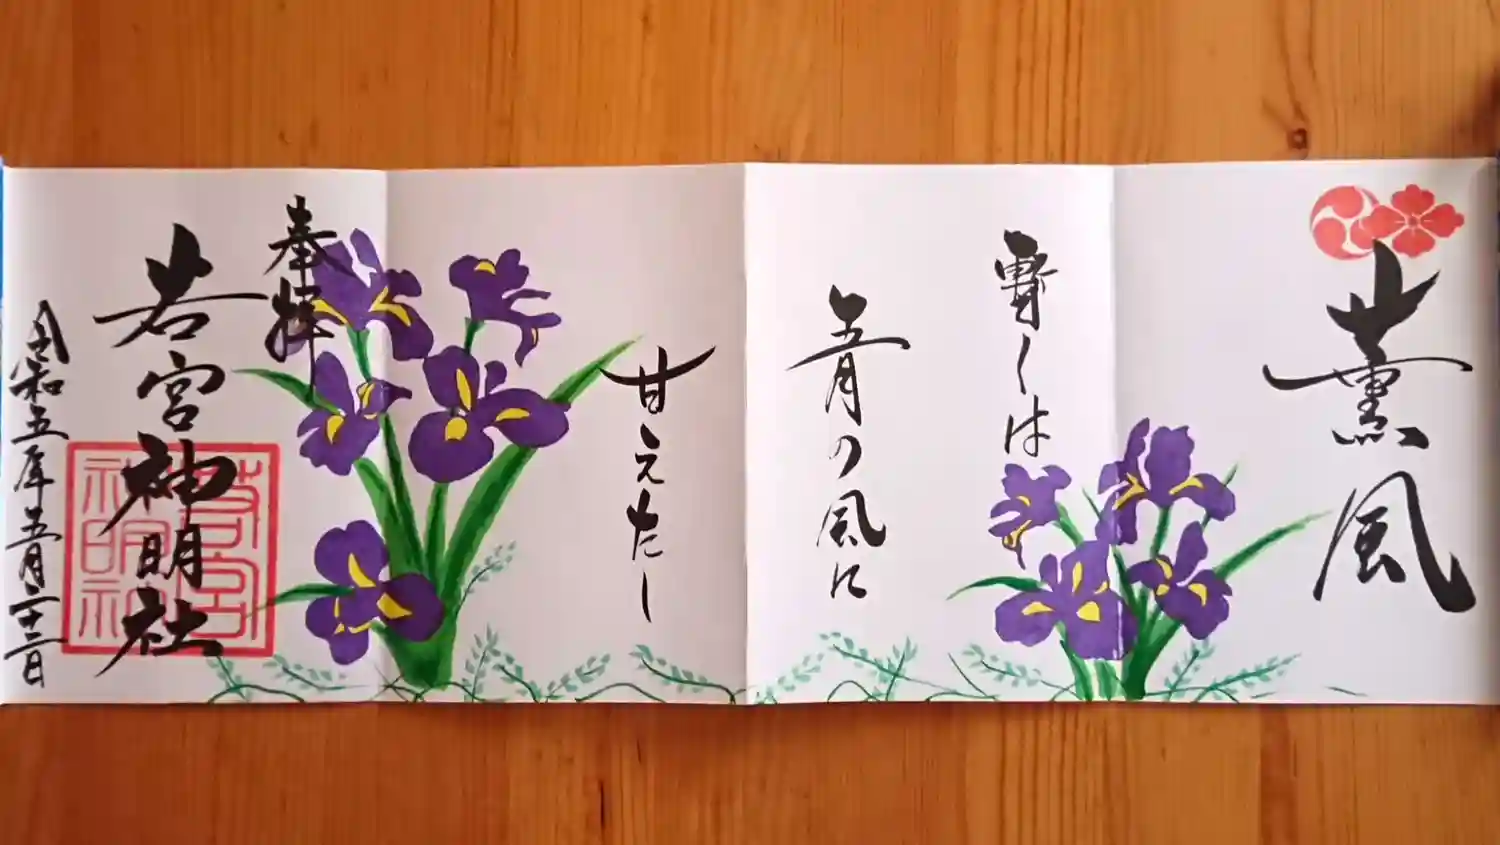 薫風
暫しは
五月の風に
甘えたし
奉拝
若宮神明社
令和五年五月二十二日
若宮
神明社